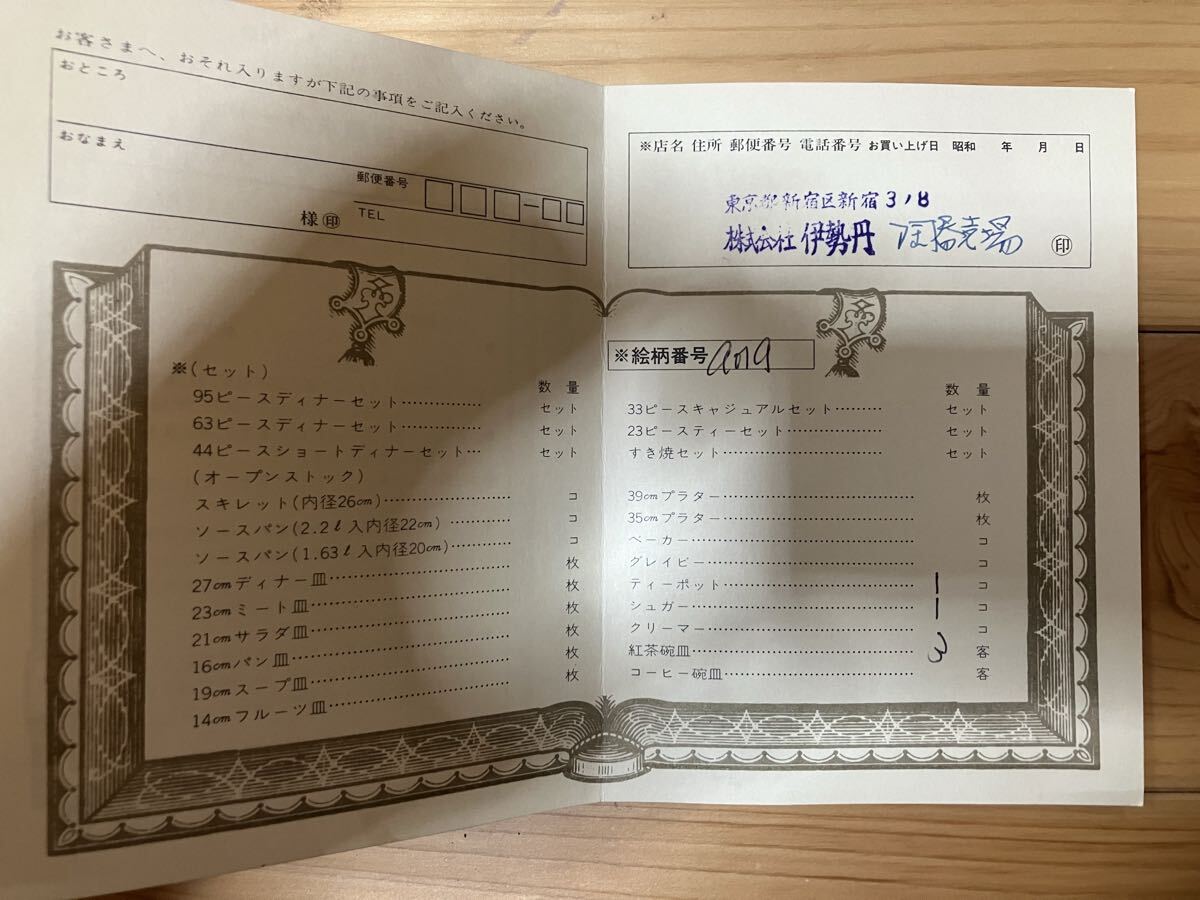 お客さまへ、おそれ入りますが下記の事項をご記入ください。
おところ
おなまえ
郵便番号
様㊞
TEL
※(セット)
数量
95ピースディナーセット……………セット
63ピースディナーセット……………セット
44ピースショートディナーセット…セット
(オープンストック)
スキレット(内径26cm)……………………コ
ソースパン(2.2ℓ入内径22cm)…………コ
ソースパン(1.63ℓ入内径20cm)…………コ
27cmディナー皿………………………………枚
23cmミート皿…………………………………枚
21cmサラダ皿…………………………………枚
16cmパン皿……………………………………枚
19cmスープ皿…………………………………枚
14cmフルーツ皿………………………………
※店名 住所 郵便番号 電話番号 お買い上げ日 昭和 年 月 日
東京都新宿区新宿318
株式会社 伊勢丹
㊞
※絵柄番号
数量
33ピースキャジュアルセット………セット
23ピースティーセット………………セット
すき焼セット…………………………セット
39cmプラター…………………………………枚
35cmプラター…………………………………枚
ベーカー………………………………………コ
グレイビー……………………………………コ
ティーポット…………………………………1コ
シュガー………………………………………1コ
クリーマー……………………………………コ
紅茶碗皿………………………………………3客
コーヒー碗皿…………………………………客